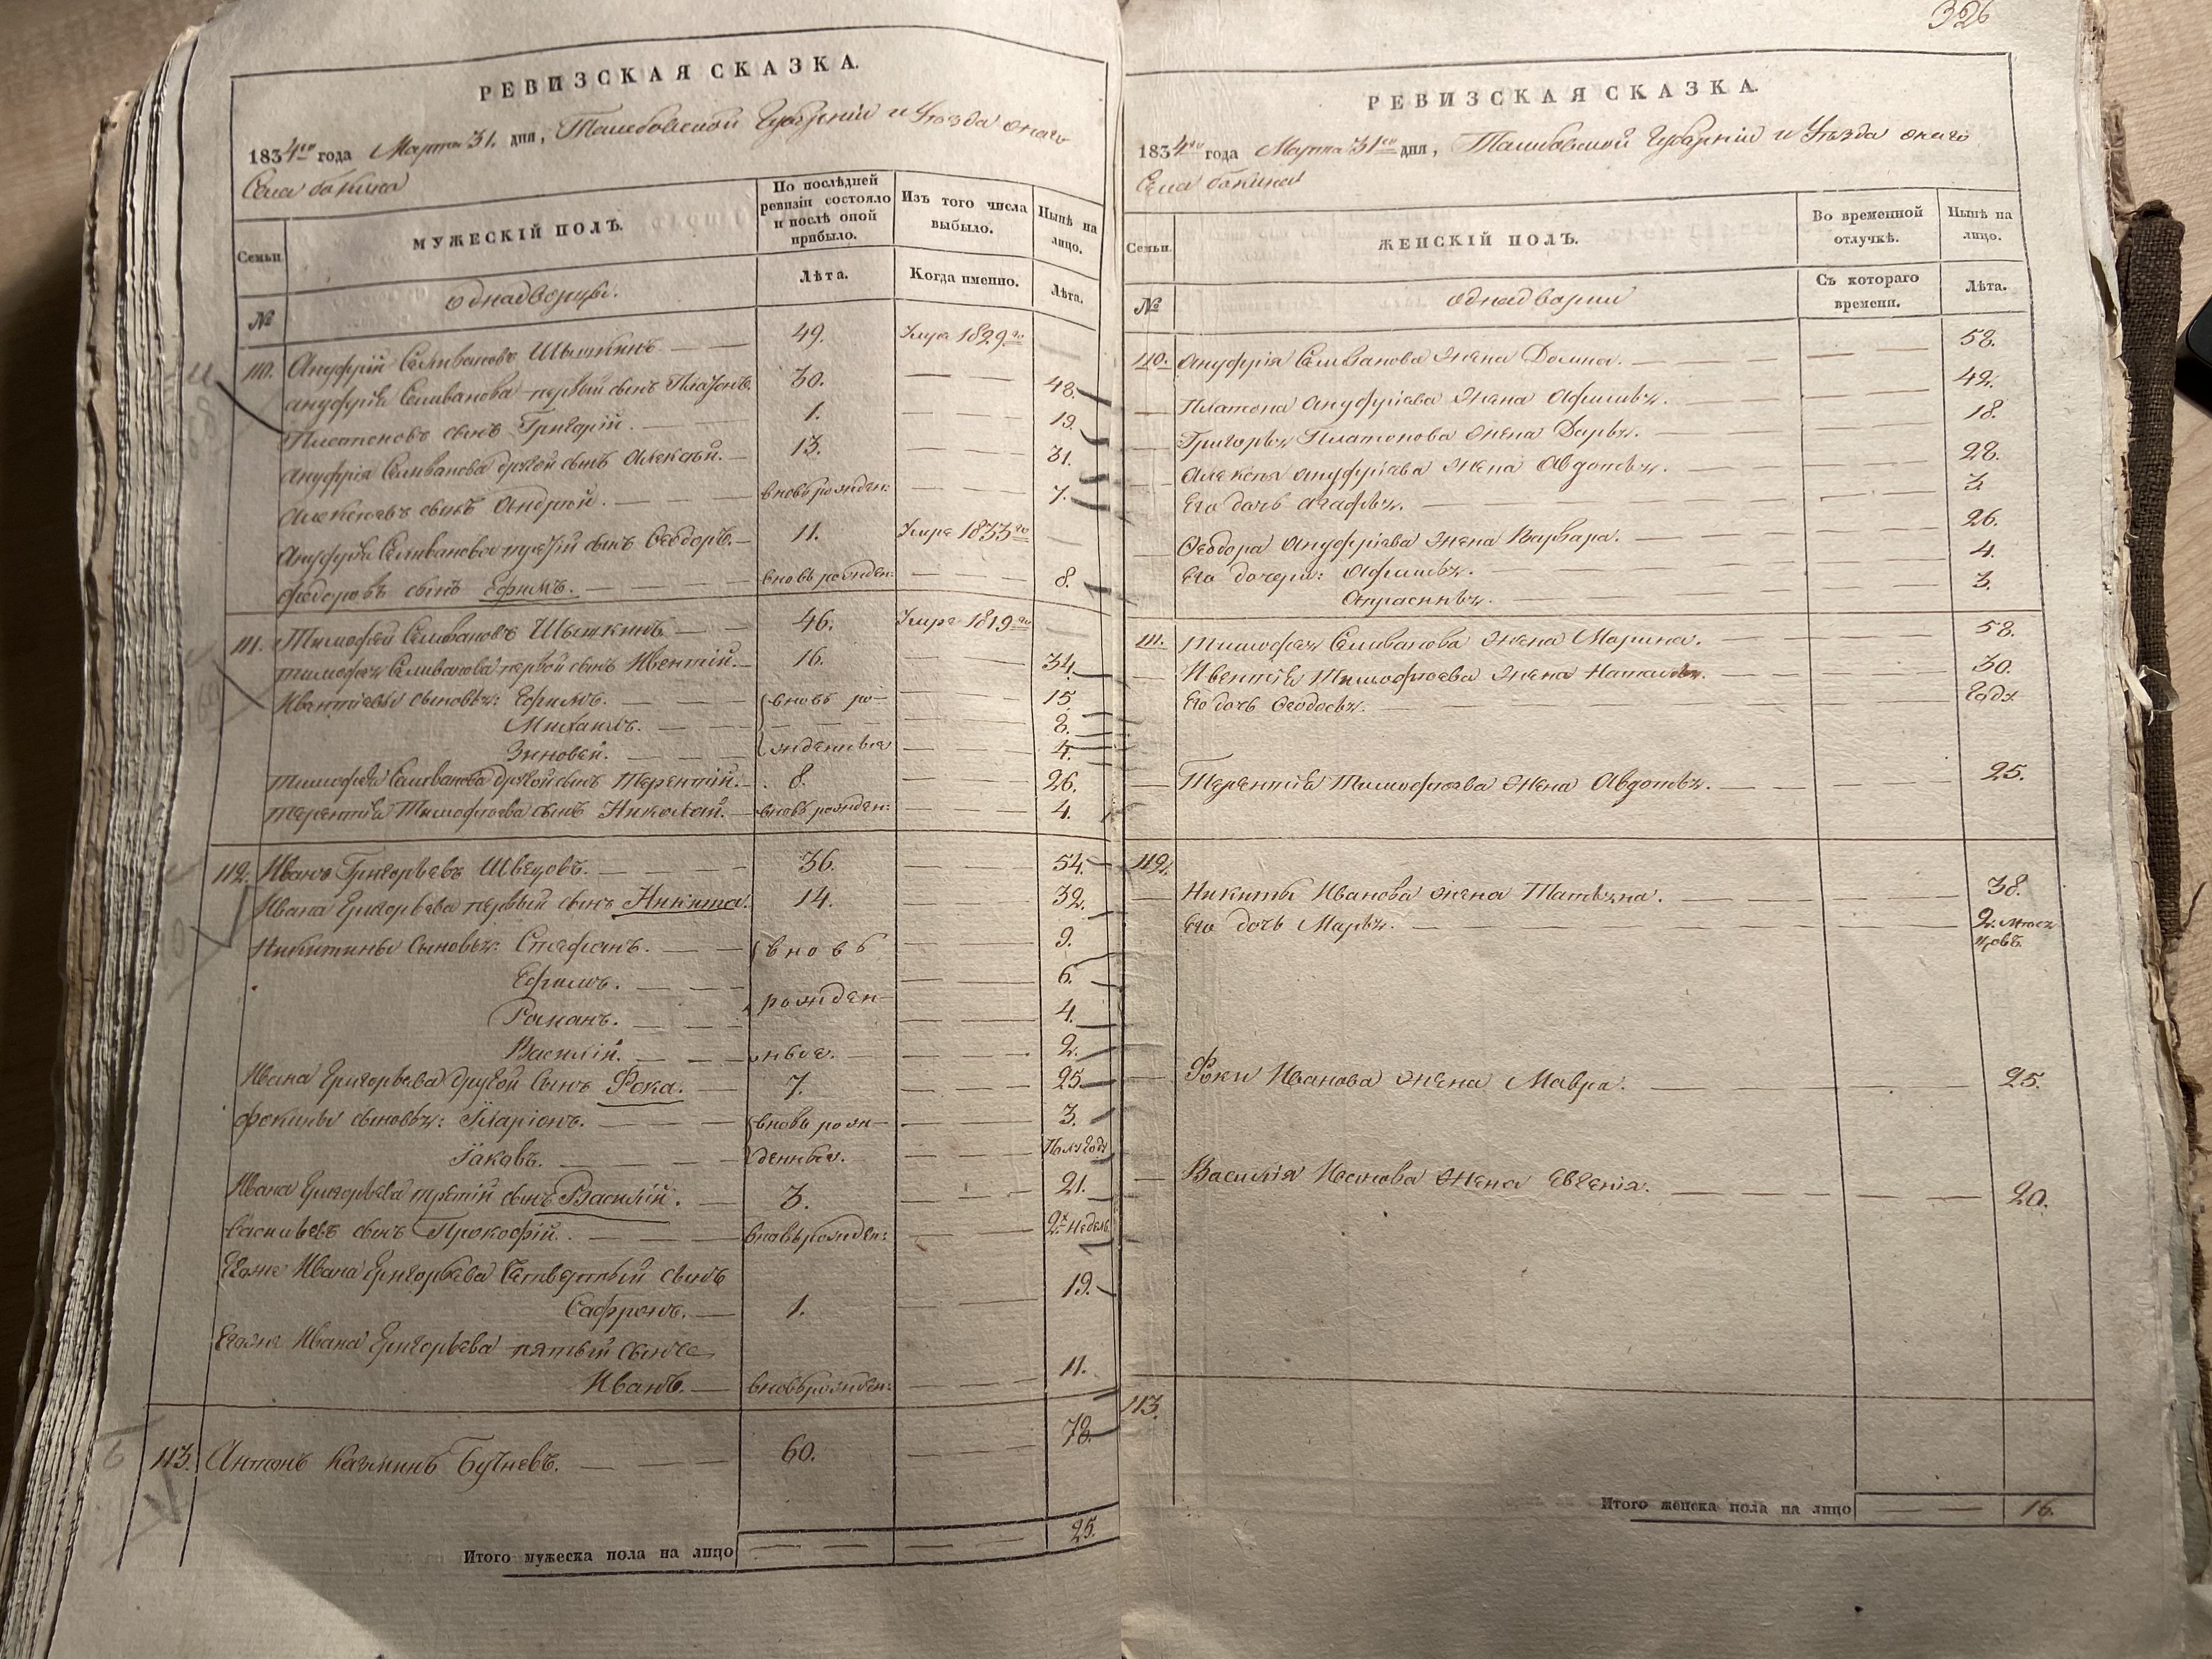 РЕВИЗСКАЯ СКАЗКА.
1834го года Марта 31. дня, Тамбовской Губернии и Уезда онаго
Села бокина
Семьи
МУЖЕСКІЙ ПОЛЪ.
По послѣдней ревизіи состояло и послѣ оной прибыло.
Изъ того числа выбыло.
Нынѣ на лицо.
№
однадворцы.
Лѣта.
Когда именно.
Лѣта.
110. Ануфрій Селивановъ Шышкинъ 49. Умре 1829го
Ануфрія Селиванова первый сынъ Платонъ. 30. 48.
Платоновъ сынъ Григорій. 1. 19.
Ануфрія Селиванова другой сынъ Алексѣй. 13. 31.
Алексѣевъ сынъ Андрѣй. вновь рожден: 7.
Ануфрія Селиванова третій сынъ Ѳеодоръ. 11. Умре 1833го
Федоровъ сынъ Ефимъ. вновь рожден: 8.
111. Тимофей Селивановъ Шышкинъ 46. Умре 1819го
Тимофея Селиванова первой сынъ Ивентій. 16. 34.
Ивентіевы сыновья: Ефимъ. вновь ро- 15.
Михаилъ. 8.
Зиновей. жденныя 4.
Тимофея Селиванова другой сынъ Терентій. 8. 26.
Терентія Тимофѣева сынъ Николай. вновь рожден: 4.
112. Иванъ Григорьевъ Швецовъ. 36. 54.
Ивана Григорьева первый сынъ Никита. 14. 32.
Никитины сыновья: Стефанъ. вновь 9.
Ефимъ. 6.
рожден-
Романъ. 4.
Василій. ныя. 2.
Ивана Григорьева другой сынъ Фока. 7. 25.
Фокины сыновья: Іларіонъ. вновь рож- 3.
Іаковъ. денныя. Полугоду
Ивана Григорьева третій сынъ Василій. 3. 21.
Васильевъ сынъ Прокофій. вновь рожден: 2х недель
Егоже Ивана Григорьева Четвертый сынъ
Сафронъ. 1. 19.
Егоже Ивана Григорьева пятый сынъ
Иванъ. вновь рожден: 11.
113. Антонъ Казминъ Бучневъ. 60. 78.
Итого мужеска пола на лицо 25.
326
РЕВИЗСКАЯ СКАЗКА.
1834го года Марта 31го дня, Тамбовской Губернии и Уезда онаго
Села бокина
Семьи
ЖЕНСКІЙ ПОЛЪ.
Во временной отлучкѣ.
Нынѣ на лицо.
№
однадварки
Съ котораго времени.
Лѣта.
110. Ануфрія Селиванова жена Домна. 58.
Платона Ануфріева жена Афимья. 42.
Григорья Платонова жена Дарья. 18.
Алексѣя Ануфріева жена Авдотья. 28.
Его дочь Агафья. 3.
Ѳеодора Ануфріева жена Варвара. 26.
Его дочери: Афимья. 4.
Апрасинья. 3.
111. Тимофея Селиванова жена Марина. 58.
Ивентія Тимофѣева жена Наталья. 30.
Его дочь Ѳеодосья. Году
Терентія Тимофѣева жена Авдотья. 25.
112.
Никиты Иванова жена Татьяна. 38.
Его дочь Марья. 2. меся
цовъ.
Фоки Иванова жена Мавра. 25.
Василія Иванова жена Евгенія. 20.
113.
Итого женска пола на лицо 16.